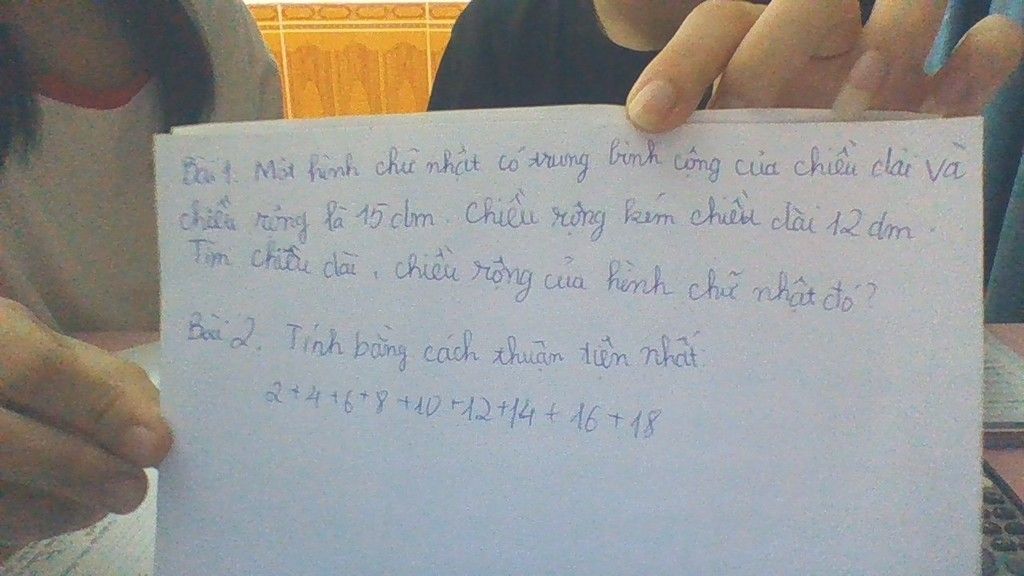 Bài 1. Một hình chữ nhật có trung bình cộng của chiều dài và
chiều rộng là 15 dm. Chiều rộng kém chiều dài 12 dm.
Tìm chiều dài, chiều rộng của hình chữ nhật đó?
Bài 2. Tính bằng cách thuận tiện nhất
2+4+6+8+10+12+14+16+18